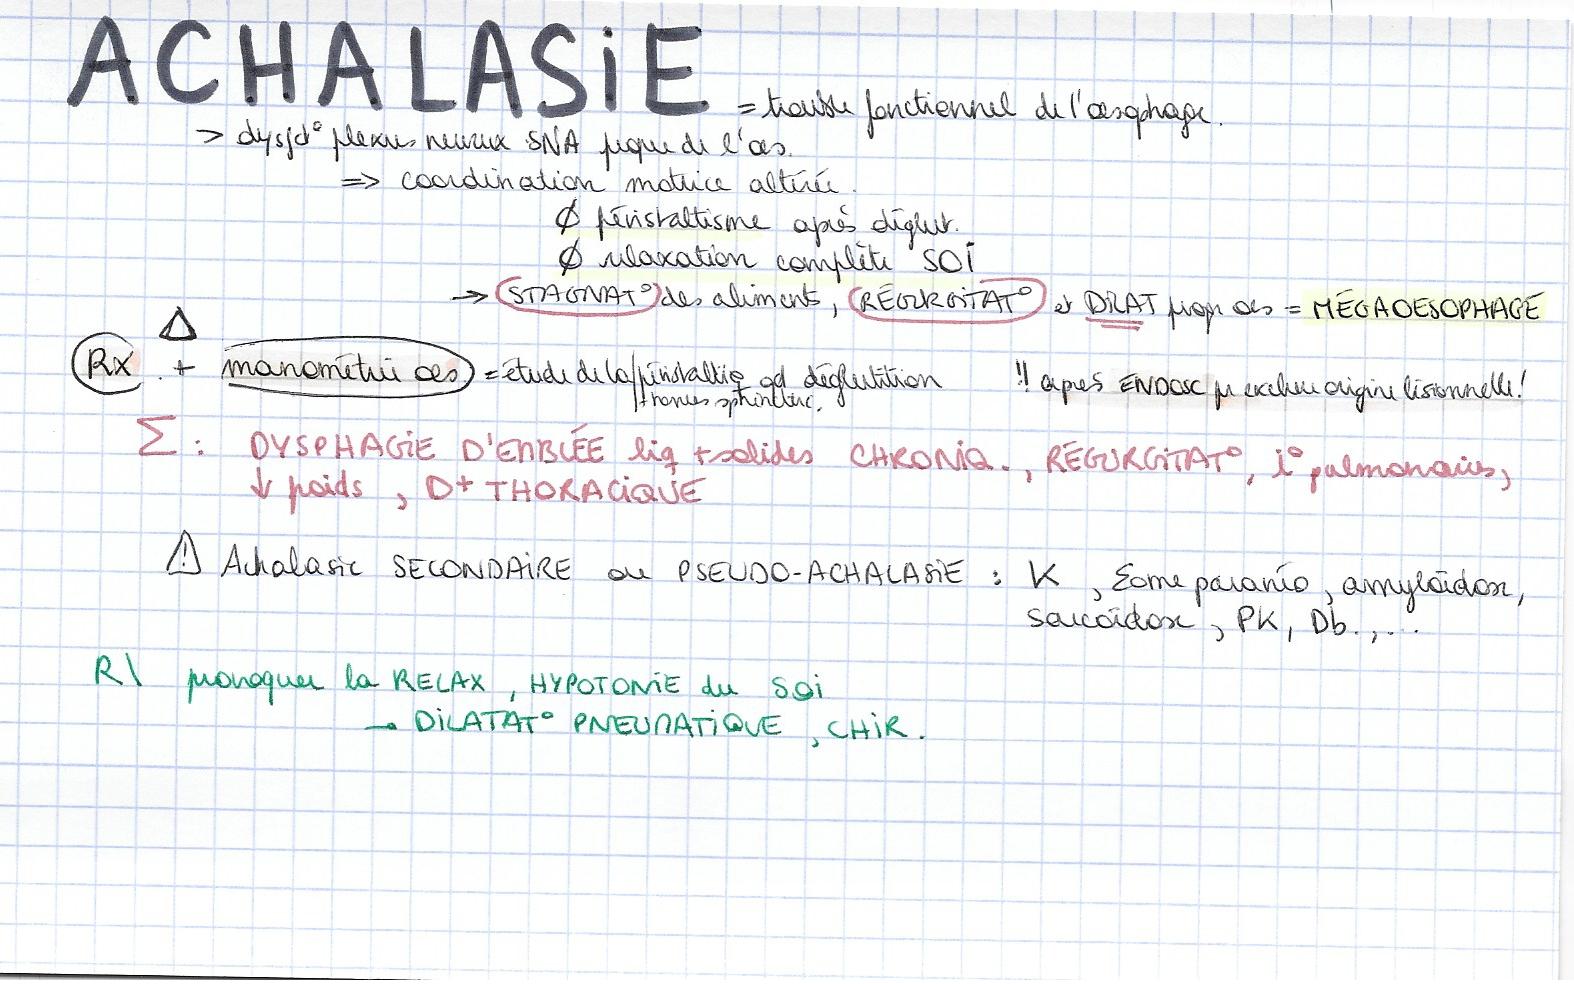 ACHALASiE = trouble fonctionnel de l'œsophage.
> dysfct° plexus nerveux SNA propre de l'œs.
=> coordination motrice altérée.
∅ péristaltisme après déglut.
∅ relaxation complète SOI
→ STAGNAT° des aliments, RÉGURGITAT° et DILAT prop œs = MÉGAOESOPHAGE
Δ
Rx + manométrie œs = étude de la péristaltiq qd déglutition !! après ENDOSC pr exclure origine lésionnelle!
sphinctér.
Σ : DYSPHAGiE D'EMBLÉE liq + solides CHRONIQ., RÉGURGiTAT°, i° pulmonaires,
↓ poids, D+ THORACiQUE
⚠ Achalasie SECONDAiRE ou PSEUDO-ACHALASiE : K, Σome paranéo, amyloïdose,
sarcoïdose, PK, Db.,...
R\ provoquer la RELAX, HYPOTONiE du SOi
→ DiLATAT° PNEUMATiQUE, CHiR.